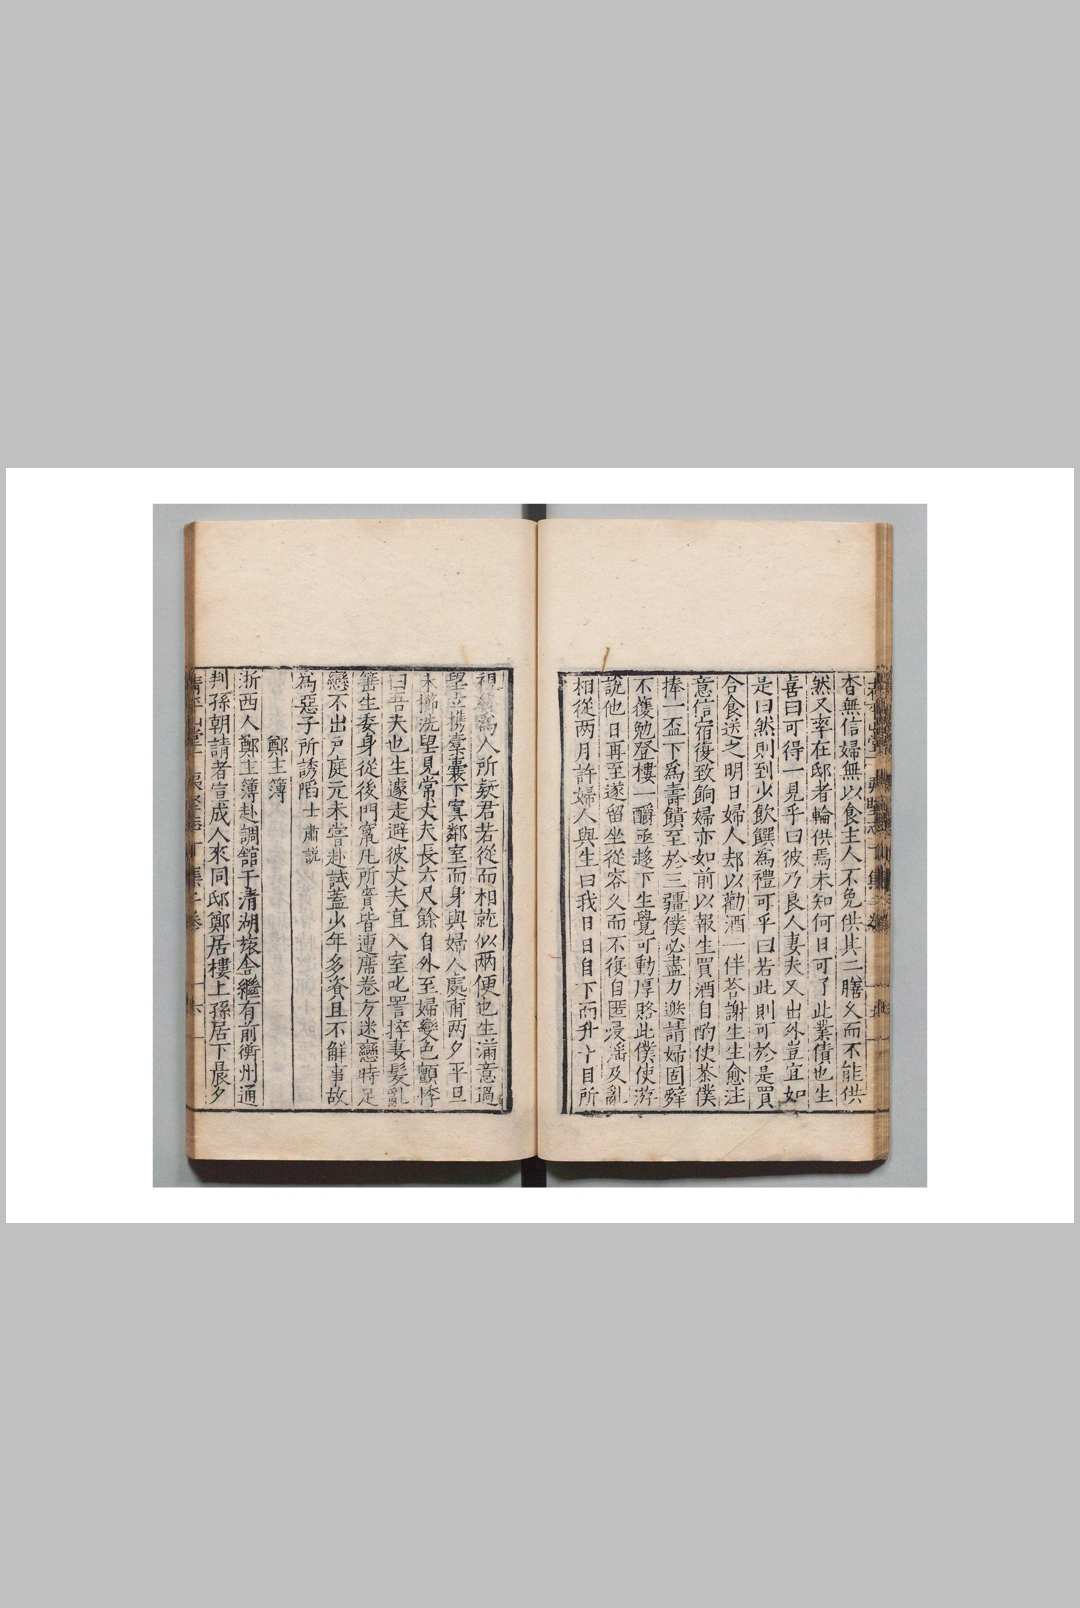 杳無信婦無以食主人不免供其二膳久而不能供
然又率在邸者輪供焉未知何日可了此業債也生
喜曰可得一見乎曰彼乃良人妻夫又出外豈宜如
是曰然則到少飲饌為禮可乎曰若此則可於是買
合食送之明日婦人却以勸酒一伴荅謝生生愈注
意信宿復致餉婦亦如前以報生買酒自酌使茶僕
捧一盃下為壽饋至於三彊僕必盡力邀請婦固辤
不獲勉登樓一釂亟趍下生覺可動厚賂此僕使游
說他日再至遂留坐從容久而不復自匿浸滛及亂
相從两月許婦人與生曰我日日自下而升十目所
視為人所疑君若從而相就似兩便也生滿意過
望立携橐囊下寘鄰室而身與婦人處甫两夕平旦
未櫛洗望見常丈夫長六尺餘自外至婦變色顫悸
曰吾夫也生遽走避彼丈夫直入室叱詈捽妻髮亂
箠生委身從後門竄凡所賫皆遭席卷方迷戀時足
戀不出戶庭元未嘗赴試蓋少年多資且不觧事故
為惡子所誘陷士肅説
鄭主簿
浙西人鄭主簿赴調舘于清湖旅舎繼有前衢州通
判孫朝請者宣成人來同邸鄭居樓上孫居下晨夕
清平山堂 夷堅志丁集 卷